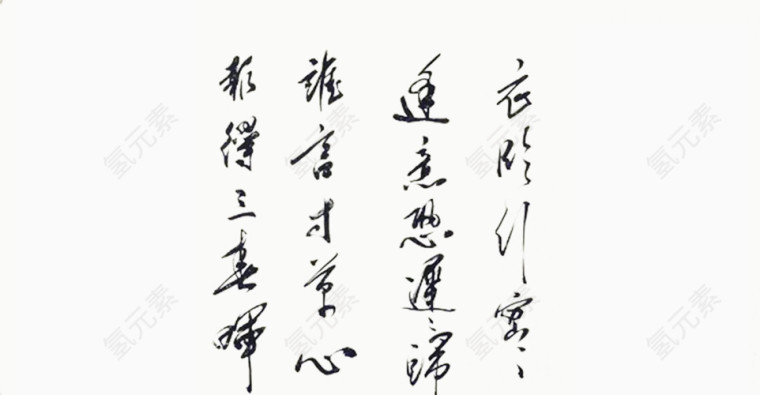 衣臨行密〻
逢意恐遲〻歸
誰言寸草心
報得三春暉
氢元素
氢元素
氢元素
氢元素
氢元素
氢元素
氢元素
氢元素